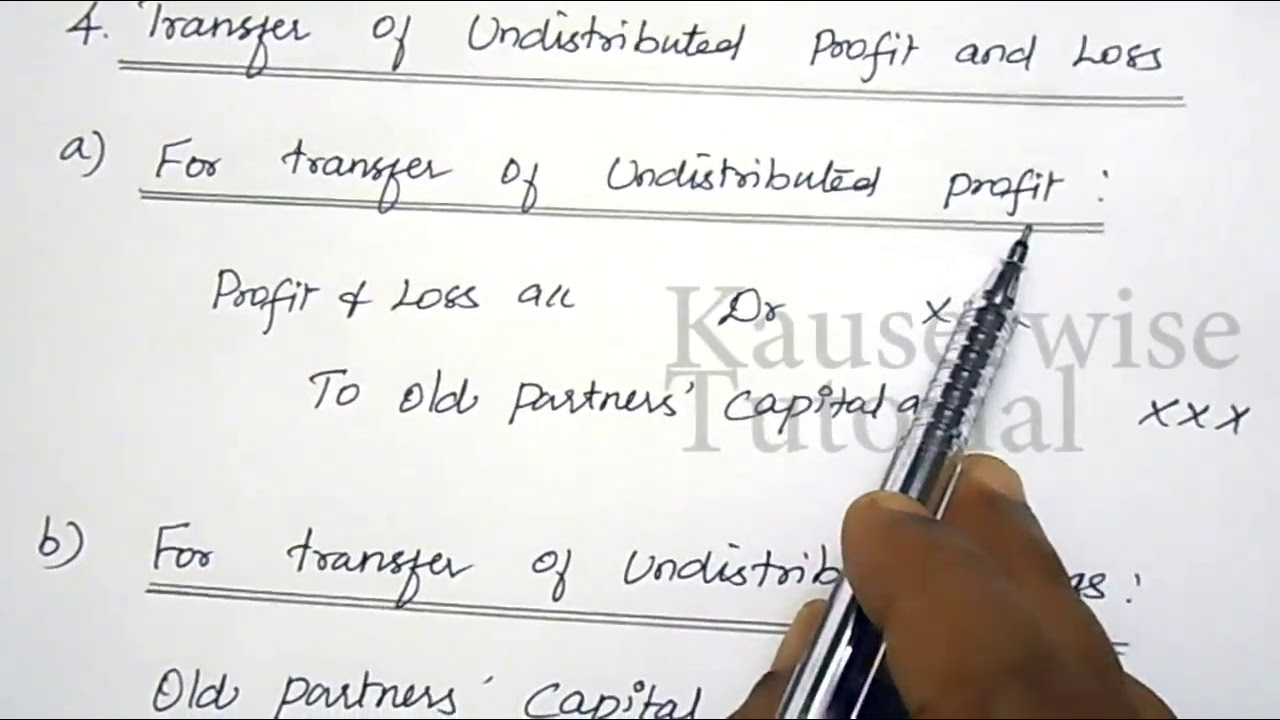 4. Transfer of Undistributed Profit and Loss
a) For transfer of Undistributed profit :
Profit & Loss a/c Dr x
To Old Partners' Capital a xxx
Kauser wise
Tutorial
b) For transfer of Undistrib :
Old partners' Capital